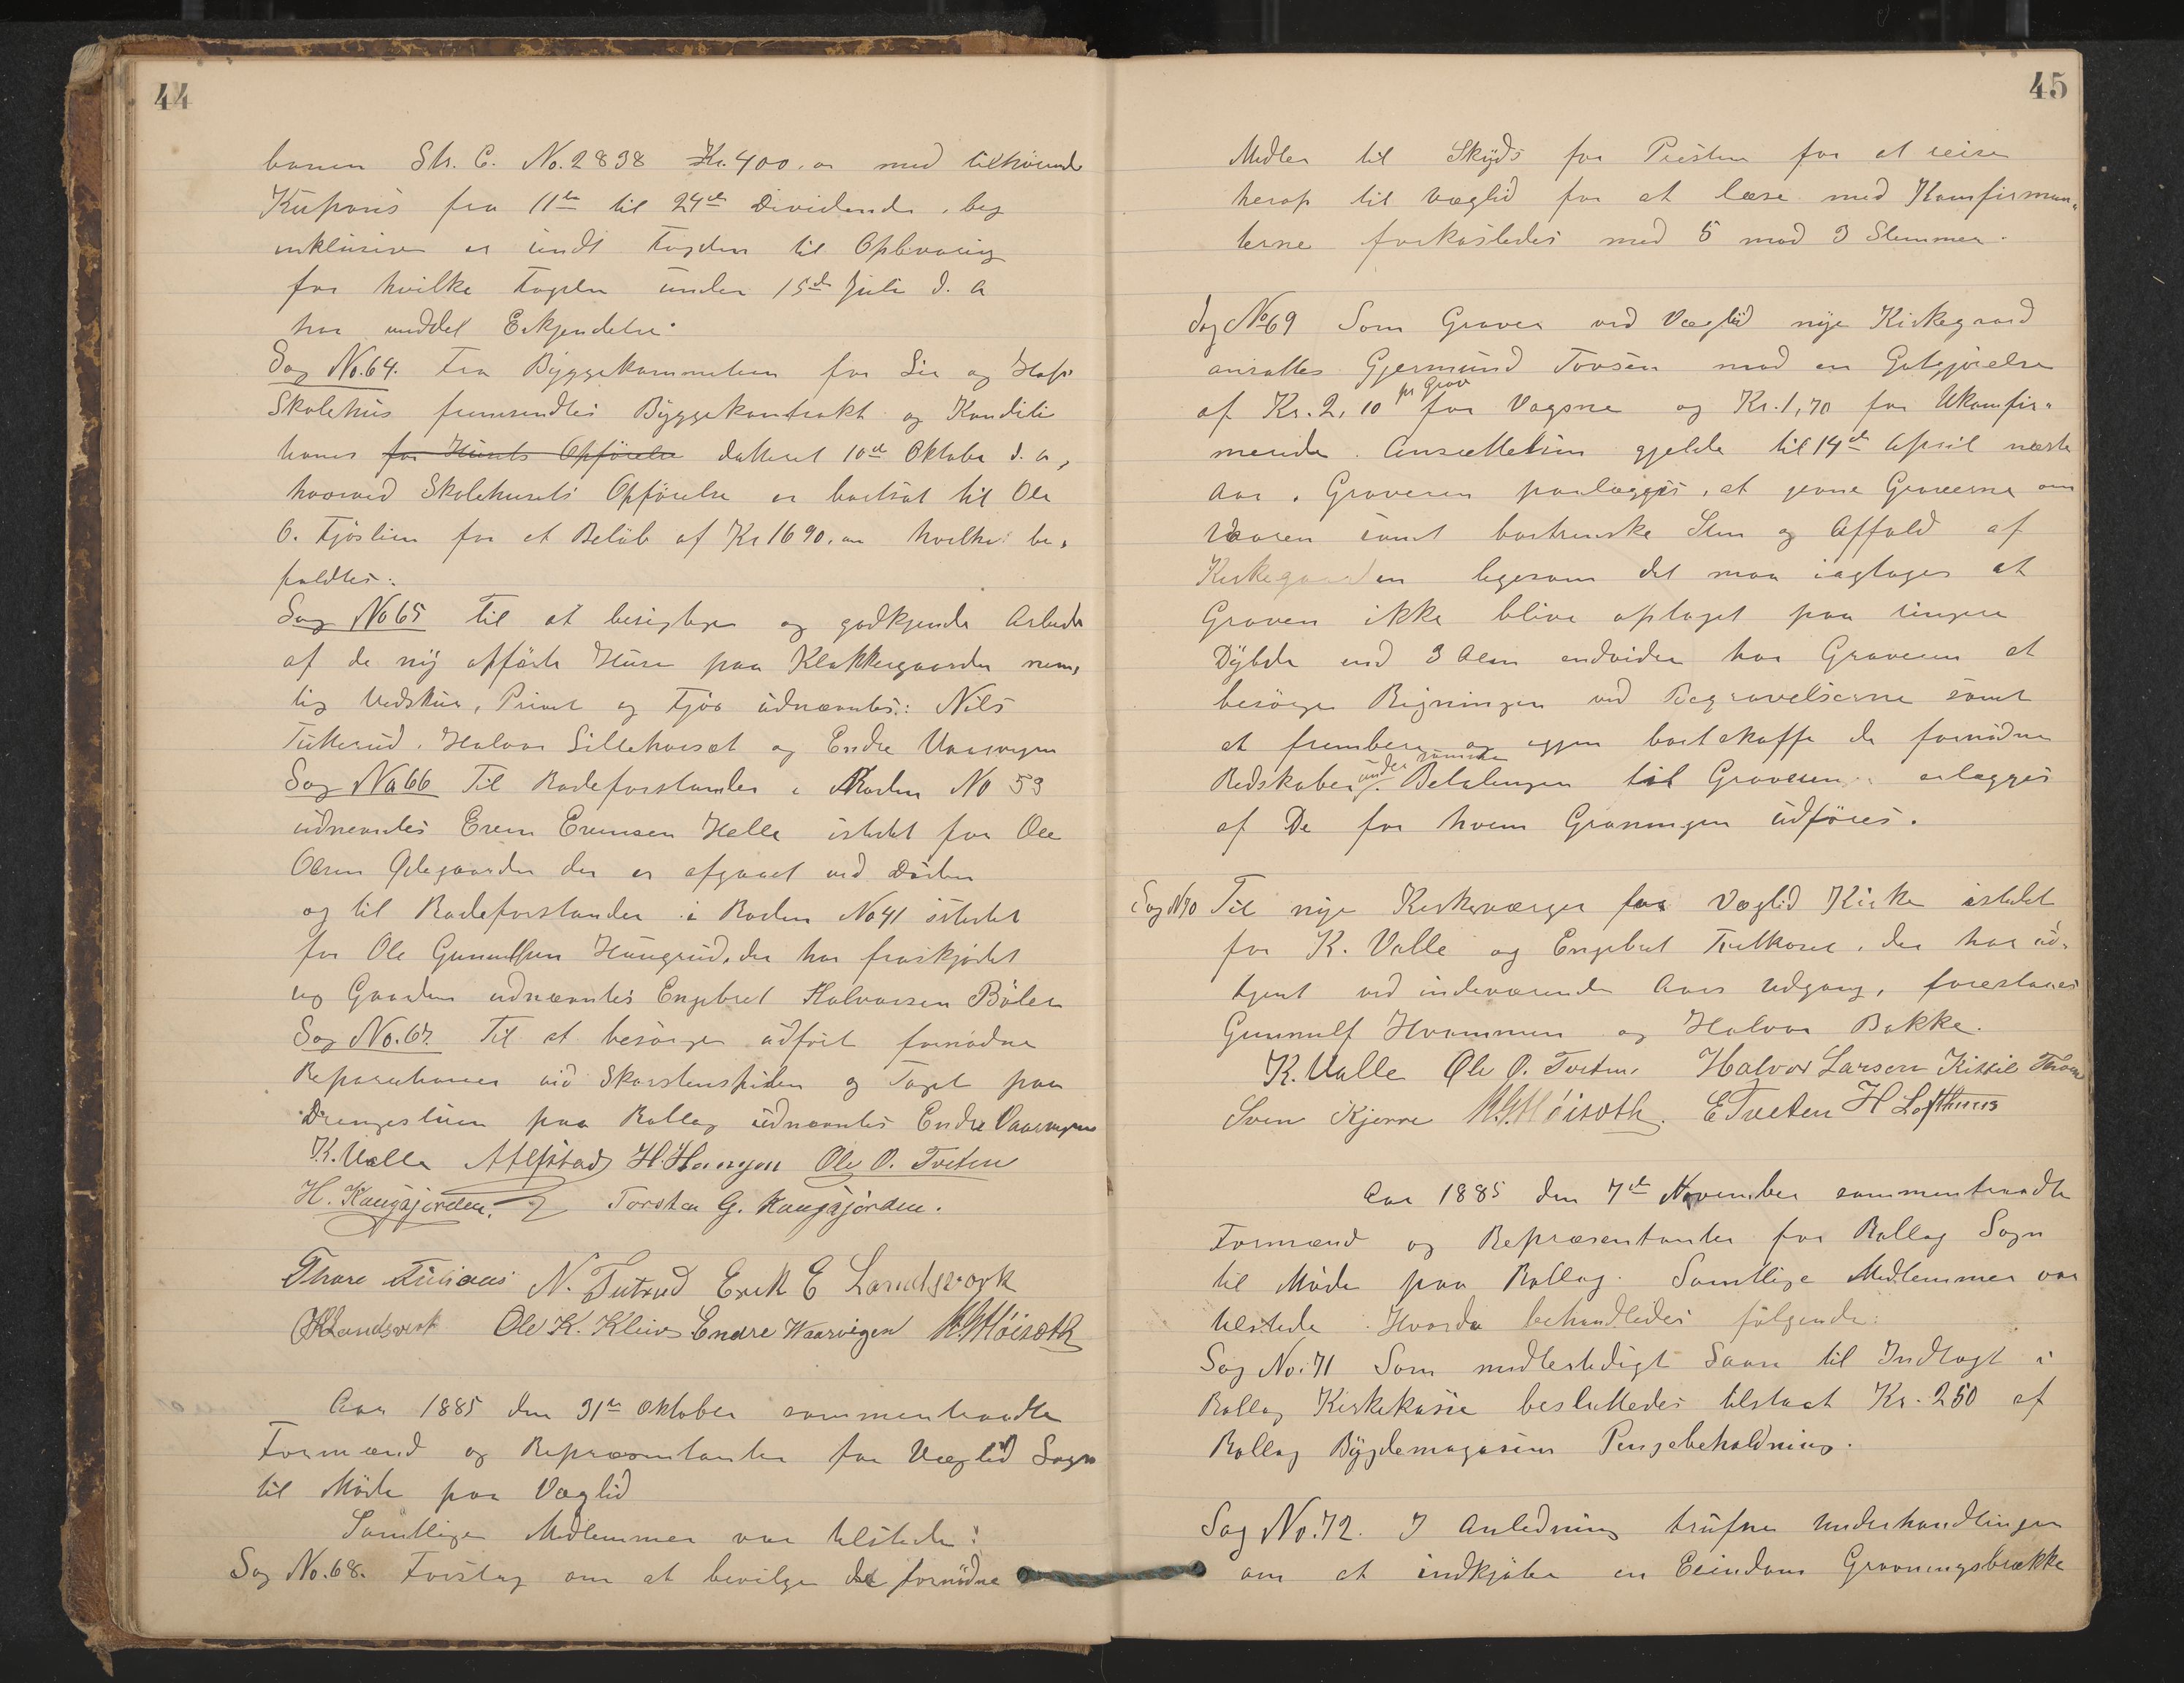 44
banen Str. C. No. 2838 Kr. 400.00 med tilhørende
Kupons fra 11te til 24de Dividende, beg
inklusive er sendt Fogden til Opbevaring
for hvilke Fogden under 15de Juli d. A
har meddel Erkjendelse.
Sag No. 64. Fra Byggekommiteen for Lia og
Skolehus fremsendtes Byggekontrakt og Konditi
honer for Husets Opförelse datteret 10de Oktober d. A,
hvorved Skolehusets Opförelse er bortsat til Ole
O. Fjöslien for et Belöb af Kr 1690.00 hvilke bi„
faldtes.
Sag No 65 Til at besigtige og godkjende Arbeide
af de ny opförte Huse paa Klokkergaarden nem„
lig Vedskur, Privet og Fjös udnævntes: Nils
Tutterud, Halvor Lillehvaset og Endre Vaarvigen
Sag No 66 Til Rodeforstander i Roden No 53
udnævntes Even Evensen Helle istedet for Ole
Olsen Ødegaarden der er afgaaet ved Døden
og til Rodeforstander i Roden No 41 istedet
for Ole Gunulfsen Haugrud, der har fraskjødet
sig Gaarden udnævntes Engebret Halvorsen Bölen
Sag No. 67. Til at besörge udfört fornödne
Reparationer ved Skorstenspiben og Taget paa
Drengestuen paa Rollag udnævntes Endre Vaarvigen
K. Valle H. Haugen Ole O. Tveten
H. Kaugsjorden. Torsten G. Kaugsjorden.
Thore N. Tutrud Erik E Landsverk
Landsverk Ole K. Kleiv Endre Waarvigen
Aar 1885 den 31te Oktober sammentraadte
Formænd og Repræsentanter for Væglid Sogn
til Möde paa Væglid
Samtlige Medlemmer var tilstede:
Sag No. 68. Forslag om at bevilge de fornödne
45
Midler til Skyds for Presten for at reise
herop til Væglid for at læse med Komfirman„
terne forkastedes med 5 mod 3 Stemmer.
Sag No 69 Som Graver ved Væglid nye Kirkegaard
ansattes Gjermund Tovsen mod en Godtgjörelse
pr Grav
af Kr. 2,10 for Vogsne og Kr. 1,70 for Ukomfir„
merede. Ansættelsen gjelder til 14de April næste
Aar. Graveren paalægges, at jevne Gravene om
Vaaren samt bortrenske Sten og Affald af
Kirkegaarden ligesom det maa iagtages at
Graven ikke blive optaget paa ringere
Dybde end 3 Alen endvidere har Graveren at
besörge Ringningen ved Begravelserne samt
at frembere og igjen bortskaffe de fornödne
under samme
Redskaber. Betalingen til Graveren erlægges
af De for hvem Gravningen udföres.
Sag N 70 Til nye Kirkeværger for Væglid Kirke istedet
for K. Valle og Engebret Tveitkaset, der har ud„
tjent ved indeværende Aars Udgang, foreslaaes
Gunnulf Hvammen og Halvor Bakke.
K. Valle Ole O. Tveten Halvor Larsen Kittil
Sven Kjerre E Tveten H Lofthuus
Aar 1885 den 7de November sammentraadte
Formænd og Repræsentanter for Rollag Sogn
til Möde paa Rollag. Samtlige Medlemmer var
tilstede. Hvorda behandledes fölgende:
Sag No. 71 Som midlertidigt Laan til Indtægt i
Rollag Kirkekasse besluttedes tilstaat Kr. 250 af
Rollag Bygdemagasins Pengebeholdning.
Sag No. 72. I Anledning trufne Underhandlinger
om at indkjöbe en Eiendom Gravningsbrække